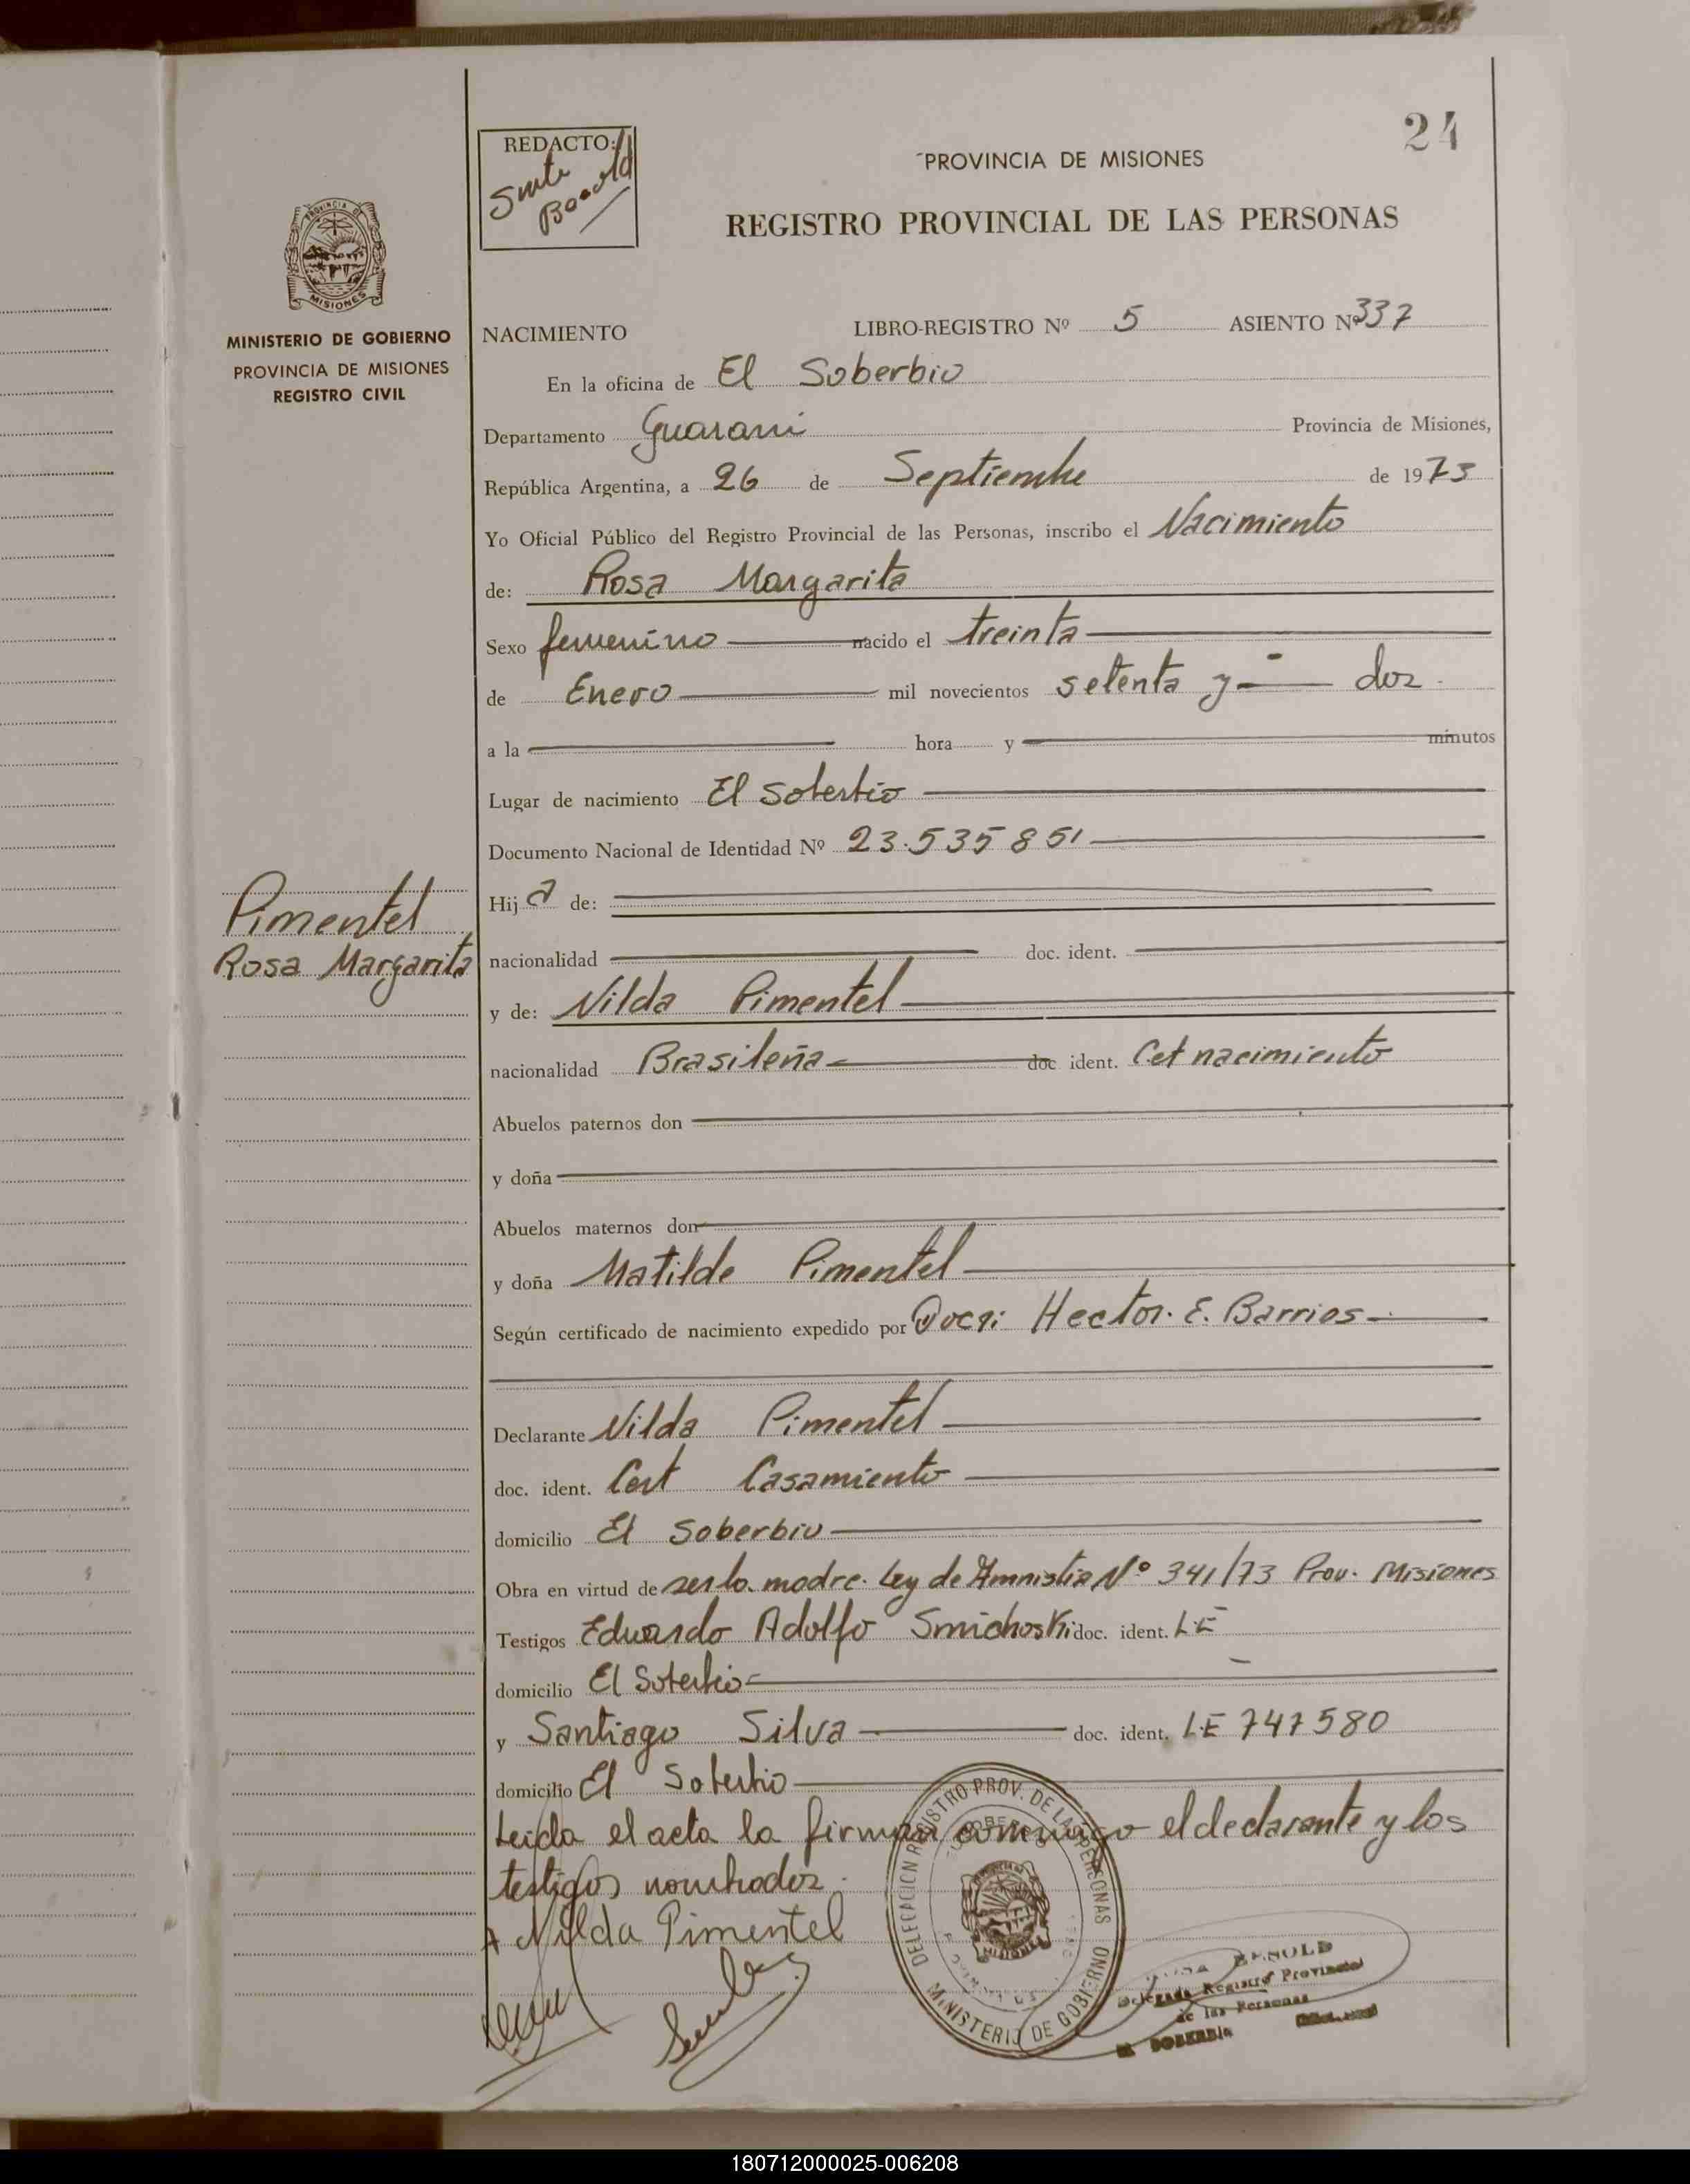 24
REDACTO:
PROVINCIA DE MISIONES
REGISTRO PROVINCIAL DE LAS PERSONAS
MISIONES
MINISTERIO DE GOBIERNO
PROVINCIA DE MISIONES
REGISTRO CIVIL
NACIMIENTO LIBRO-REGISTRO Nº 5 ASIENTO Nº 337
En la oficina de El Soberbio
Departamento Guarani Provincia de Misiones,
República Argentina, a 26 de Septiembre de 1973
Yo Oficial Público del Registro Provincial de las Personas, inscribo el Nacimiento
de: Rosa Margarita
Sexo femenino nacido el treinta
de Enero mil novecientos setenta y dos
a la hora y minutos
Lugar de nacimiento El Soberbio
Documento Nacional de Identidad Nº 23.535851
Hija de:
Pimentel
Rosa Margarita
nacionalidad doc. ident.
y de: Nilda Pimentel
nacionalidad Brasileña doc ident. Cet nacimiento
Abuelos paternos don
y doña
Abuelos maternos don
y doña Matilde Pimentel
Según certificado de nacimiento expedido por Hector. E. Barrios
Declarante Nilda Pimentel
doc. ident. Cert Casamiento
domicilio El Soberbio
Obra en virtud de ser la madre. Ley de Amnistia Nº 341/73 Prov. Misiones
Testigos Eduardo Adolfo Smichoski doc. ident. LE
domicilio El Soberbio
y Santiago Silva doc. ident. LE 747580
domicilio El Soberbio
Leida el acta la firman conmigo el declarante y los
testigos nombrados.
Nilda Pimentel
DELEGACION REGISTRO PROV. DE LAS PERSONAS
MINISTERIO DE GOBIERNO
BENOLD
Delegada Registro Provincial
de las Personas
EL SOBERBIO
180712000025-006208